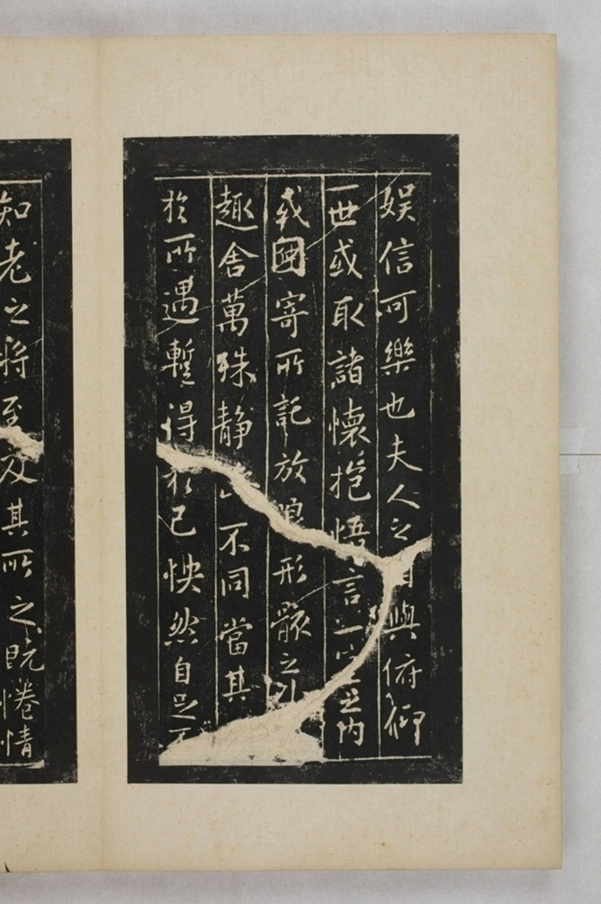 娱信可樂也夫人之相與俯仰
一世或取諸懷抱悟言一室之内
或因寄所託放浪形骸之外
趣舍萬殊静躁不同當其
於所遇蹔得於己怏然自足不
知老之將至及其所之既惓情